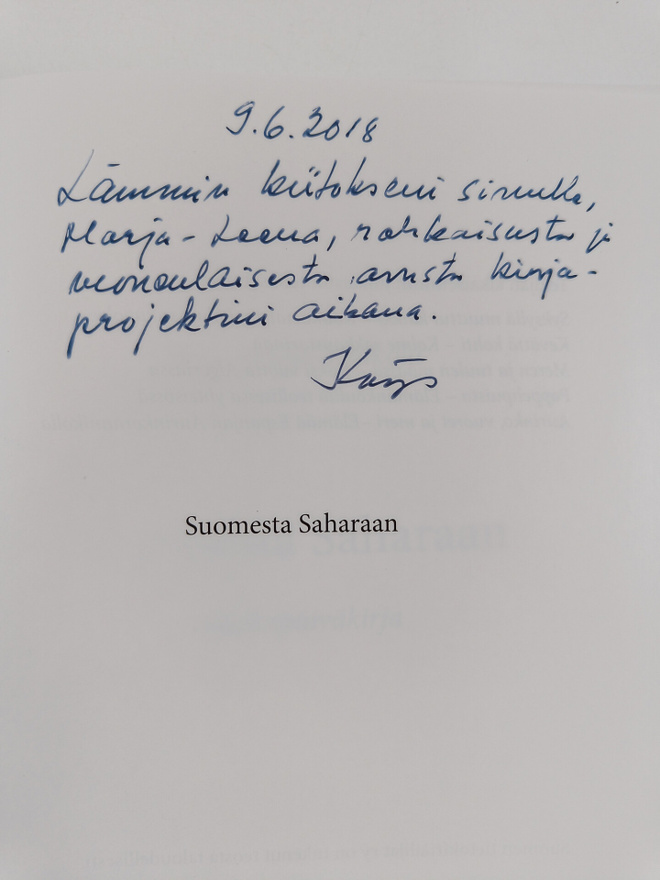 9.6.2018
Lämmin kiitokseni sinulle,
Marja-Leena, rohkaisusta ja
verrattomasta avusta kirja-
projektini aikana.
Kaija
Suomesta Saharaan